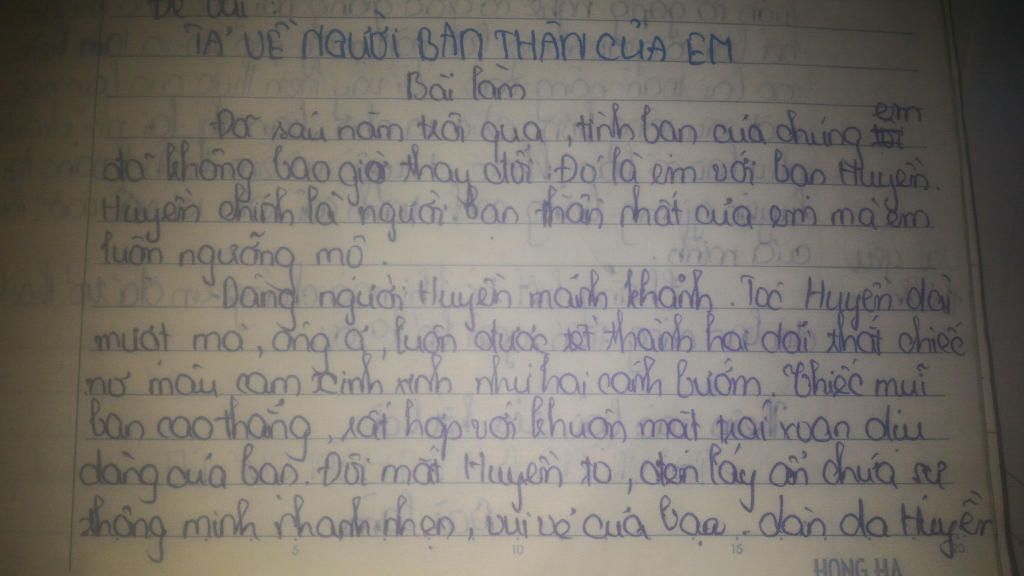 Đề bài:
TẢ VỀ NGƯỜI BẠN THÂN CỦA EM
Bài làm
Đã sáu năm trôi qua, tình bạn của chúng em
đã không bao giờ thay đổi. Đó là em với bạn Huyền.
Huyền chính là người bạn thân nhất của em mà em
luôn ngưỡng mộ.
Dáng người Huyền mảnh khảnh. Tóc Huyền dài
mượt mà, óng ả, luôn được tết thành hai dải thắt chiếc
nơ màu cam xinh xinh như hai cánh bướm. Chiếc mũi
bạn cao thẳng, rất hợp với khuôn mặt trái xoan dịu
dàng của bạn. Đôi mắt Huyền to, đen láy ẩn chứa sự
thông minh nhanh nhẹn, vui vẻ của bạn. Làn da Huyền
5 10 15 20
HONG HA